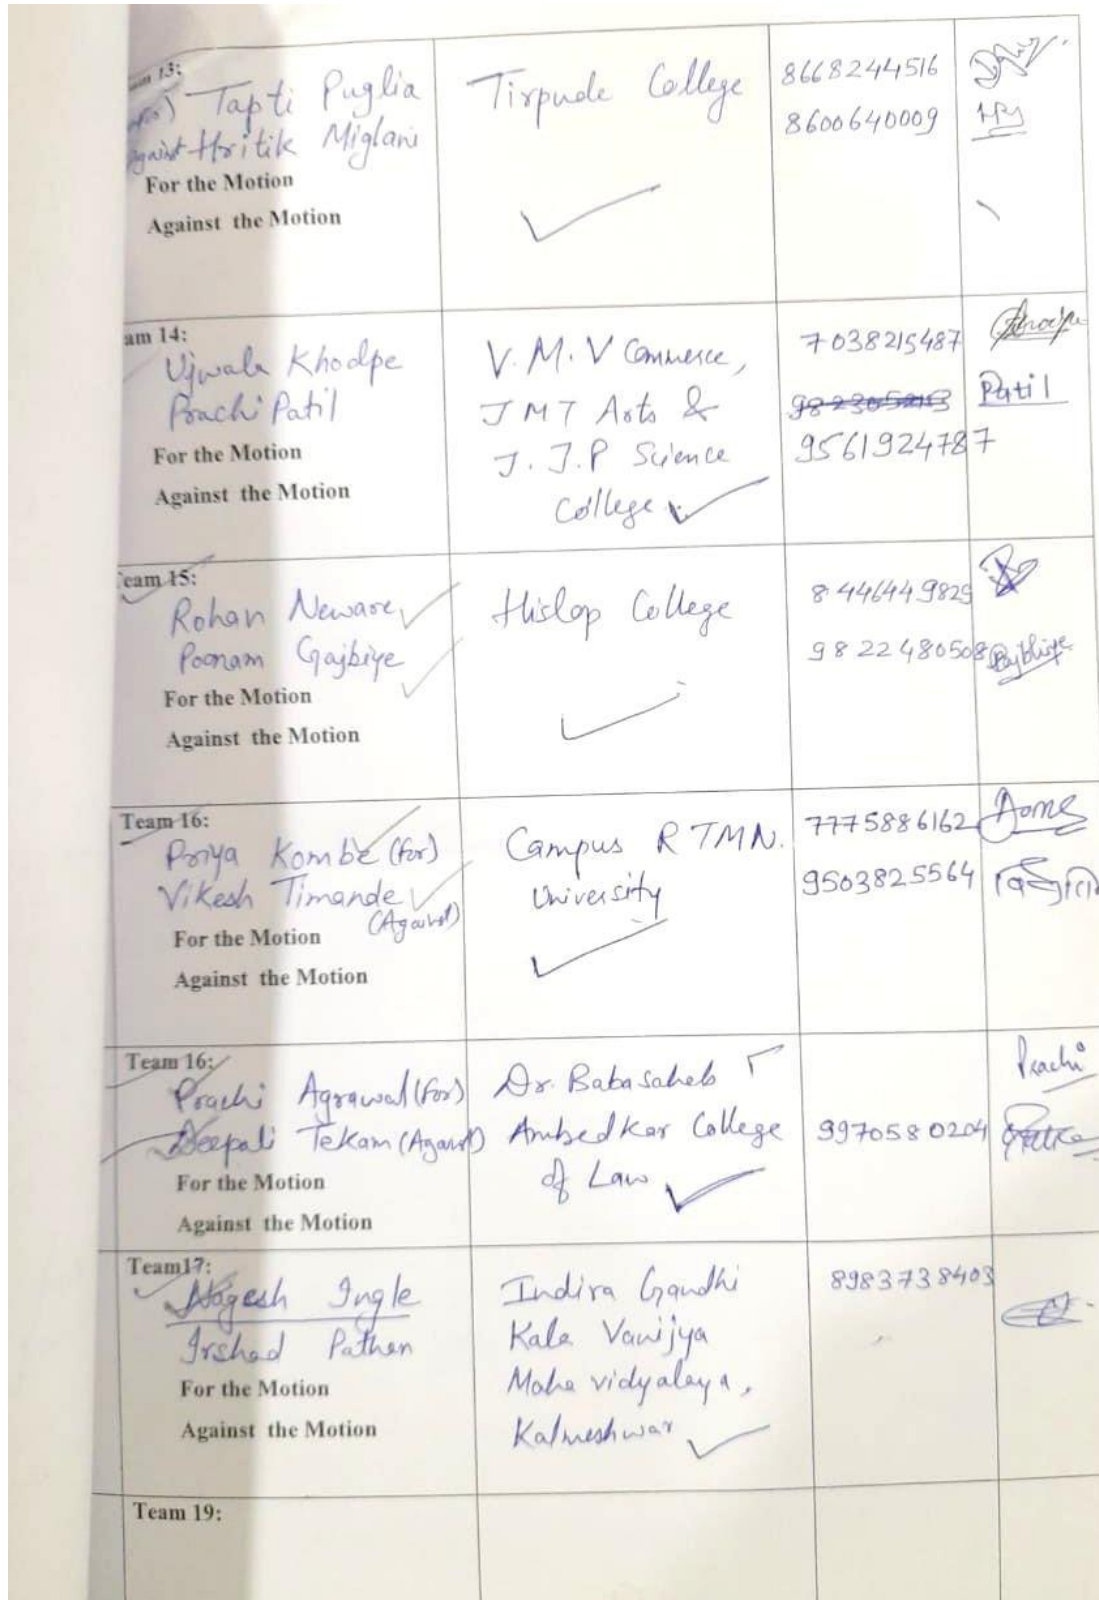 13:
(For) Tapti Puglia
Against Hritik Miglani
For the Motion
Against the Motion
Tirpude College
8668244516
8600640009
am 14:
Ujwala Khodpe
Prachi Patil
For the Motion
Against the Motion
V.M.V Commerce,
JMT Arts &
J.J.P Science
College
7038215487
9561924787
Patil
eam 15:
Rohan Neware
Poonam Gajbiye
For the Motion
Against the Motion
Hislop College
8446449829
9822480508
Team 16:
Priya Kombe (For)
Vikesh Timande
(Against)
For the Motion
Against the Motion
Campus RTMN.
University
7775886162
9503825564
Team 16:
Prachi Agrawal (For)
Deepali Tekam (Against)
For the Motion
Against the Motion
Dr. Babasaheb
Ambedkar College
of Law
9970580204
Prachi
Team17:
Nagesh Ingle
Irshad Pathan
For the Motion
Against the Motion
Indira Gandhi
Kala Vanijya
Maha vidyalaya,
Kalmeshwar
8983738403
Team 19: